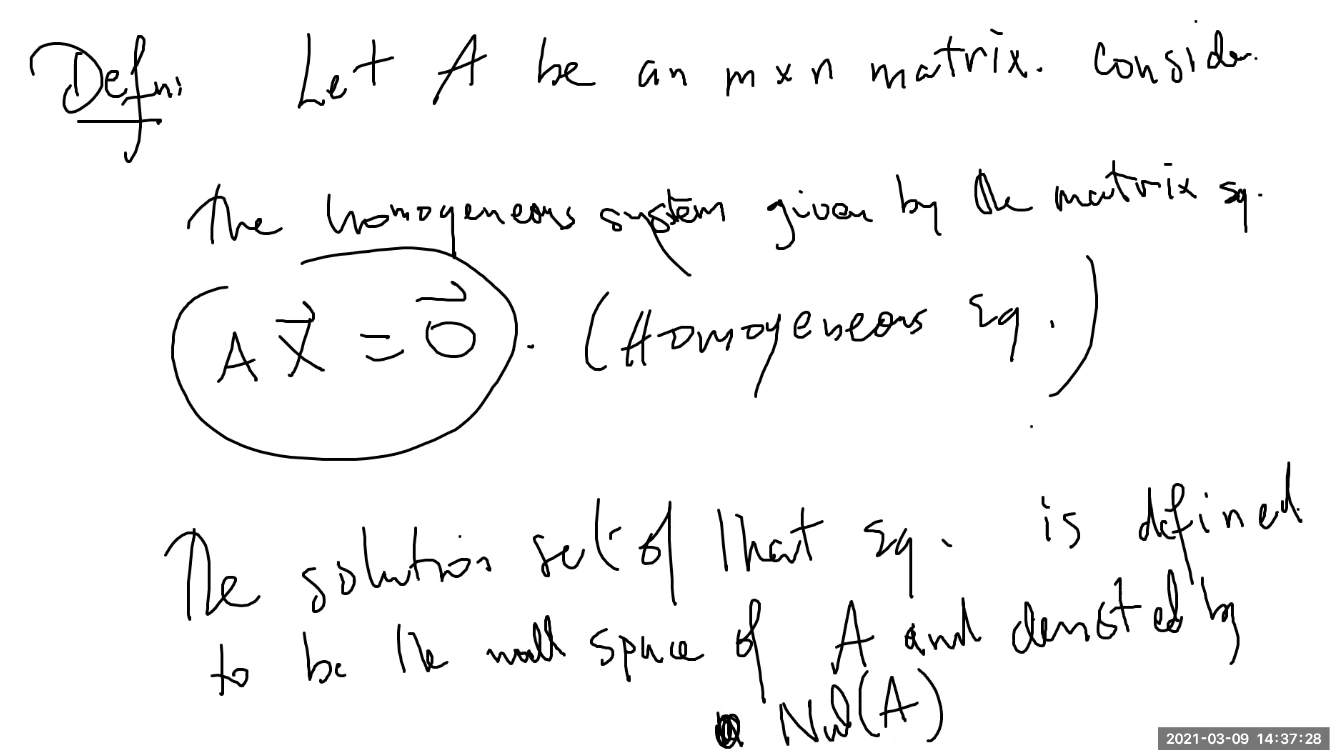 Defn: Let A be an m × n matrix. Consider
the homogeneous system given by the matrix eq.
A X⃗ = 0⃗. (Homogeneous Eq.)
The solution set of that Eq. is defined
to be the null space of A and denoted by
Nul(A)
2021-03-09 14:37:28